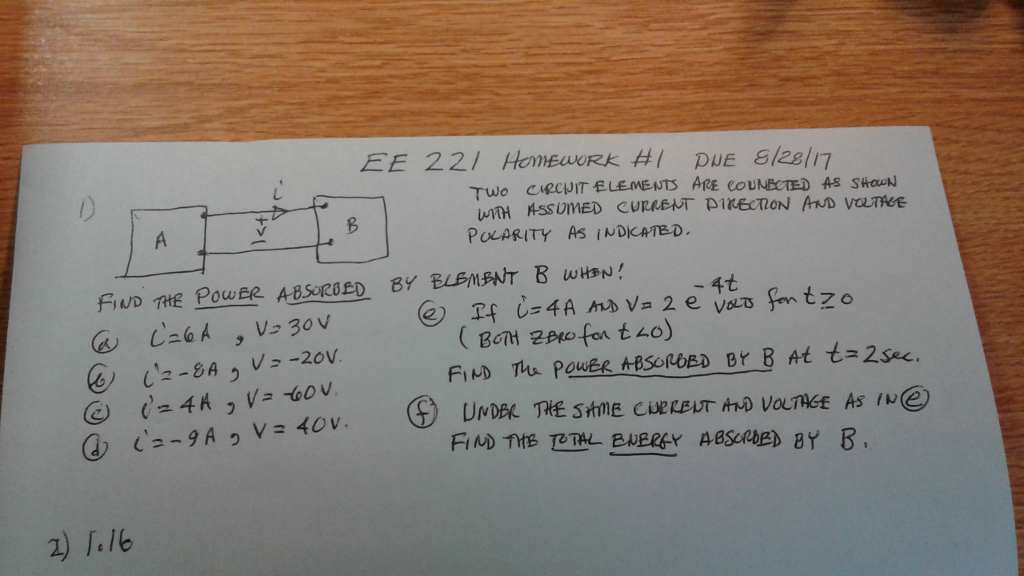 EE 221 HOMEWORK #1 DUE 8/28/17
1)
TWO CIRCUIT ELEMENTS ARE CONNECTED AS SHOWN
WITH ASSUMED CURRENT DIRECTION AND VOLTAGE
POLARITY AS INDICATED.
i
A
+
V
−
B
FIND THE POWER ABSORBED BY ELEMENT B WHEN!
(a) i=6A, V=30V
(b) i=-8A, V=-20V.
(c) i=4A, V=-60V.
(d) i=-9A, V=40V.
(e) If i=4A AND V=2e^-4t VOLTS for t≥0
(BOTH ZERO for t<0)
FIND The POWER ABSORBED BY B At t=2sec.
(f) UNDER THE SAME CURRENT AND VOLTAGE AS IN (e)
FIND THE TOTAL ENERGY ABSORBED BY B.
2) 1.16